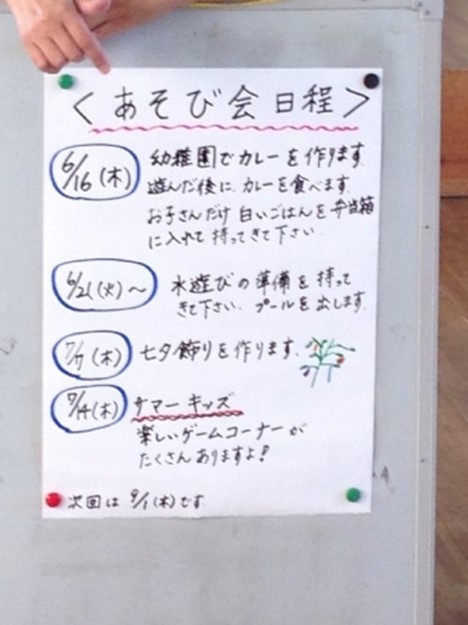 ＜あそび会日程＞
6/16(木)
幼稚園でカレーを作ります.
遊んだ後に、カレーを食べます.
お子さんだけ白いごはんを弁当箱
に入れて持ってきて下さい.
6/21(火)～
水遊びの準備を持って
きて下さい. プールを出します.
7/7(木) 七夕飾りを作ります.
7/14(木) サマーキッズ
楽しいゲームコーナーが
たくさんありますよ!
次回は 9/1(木)です